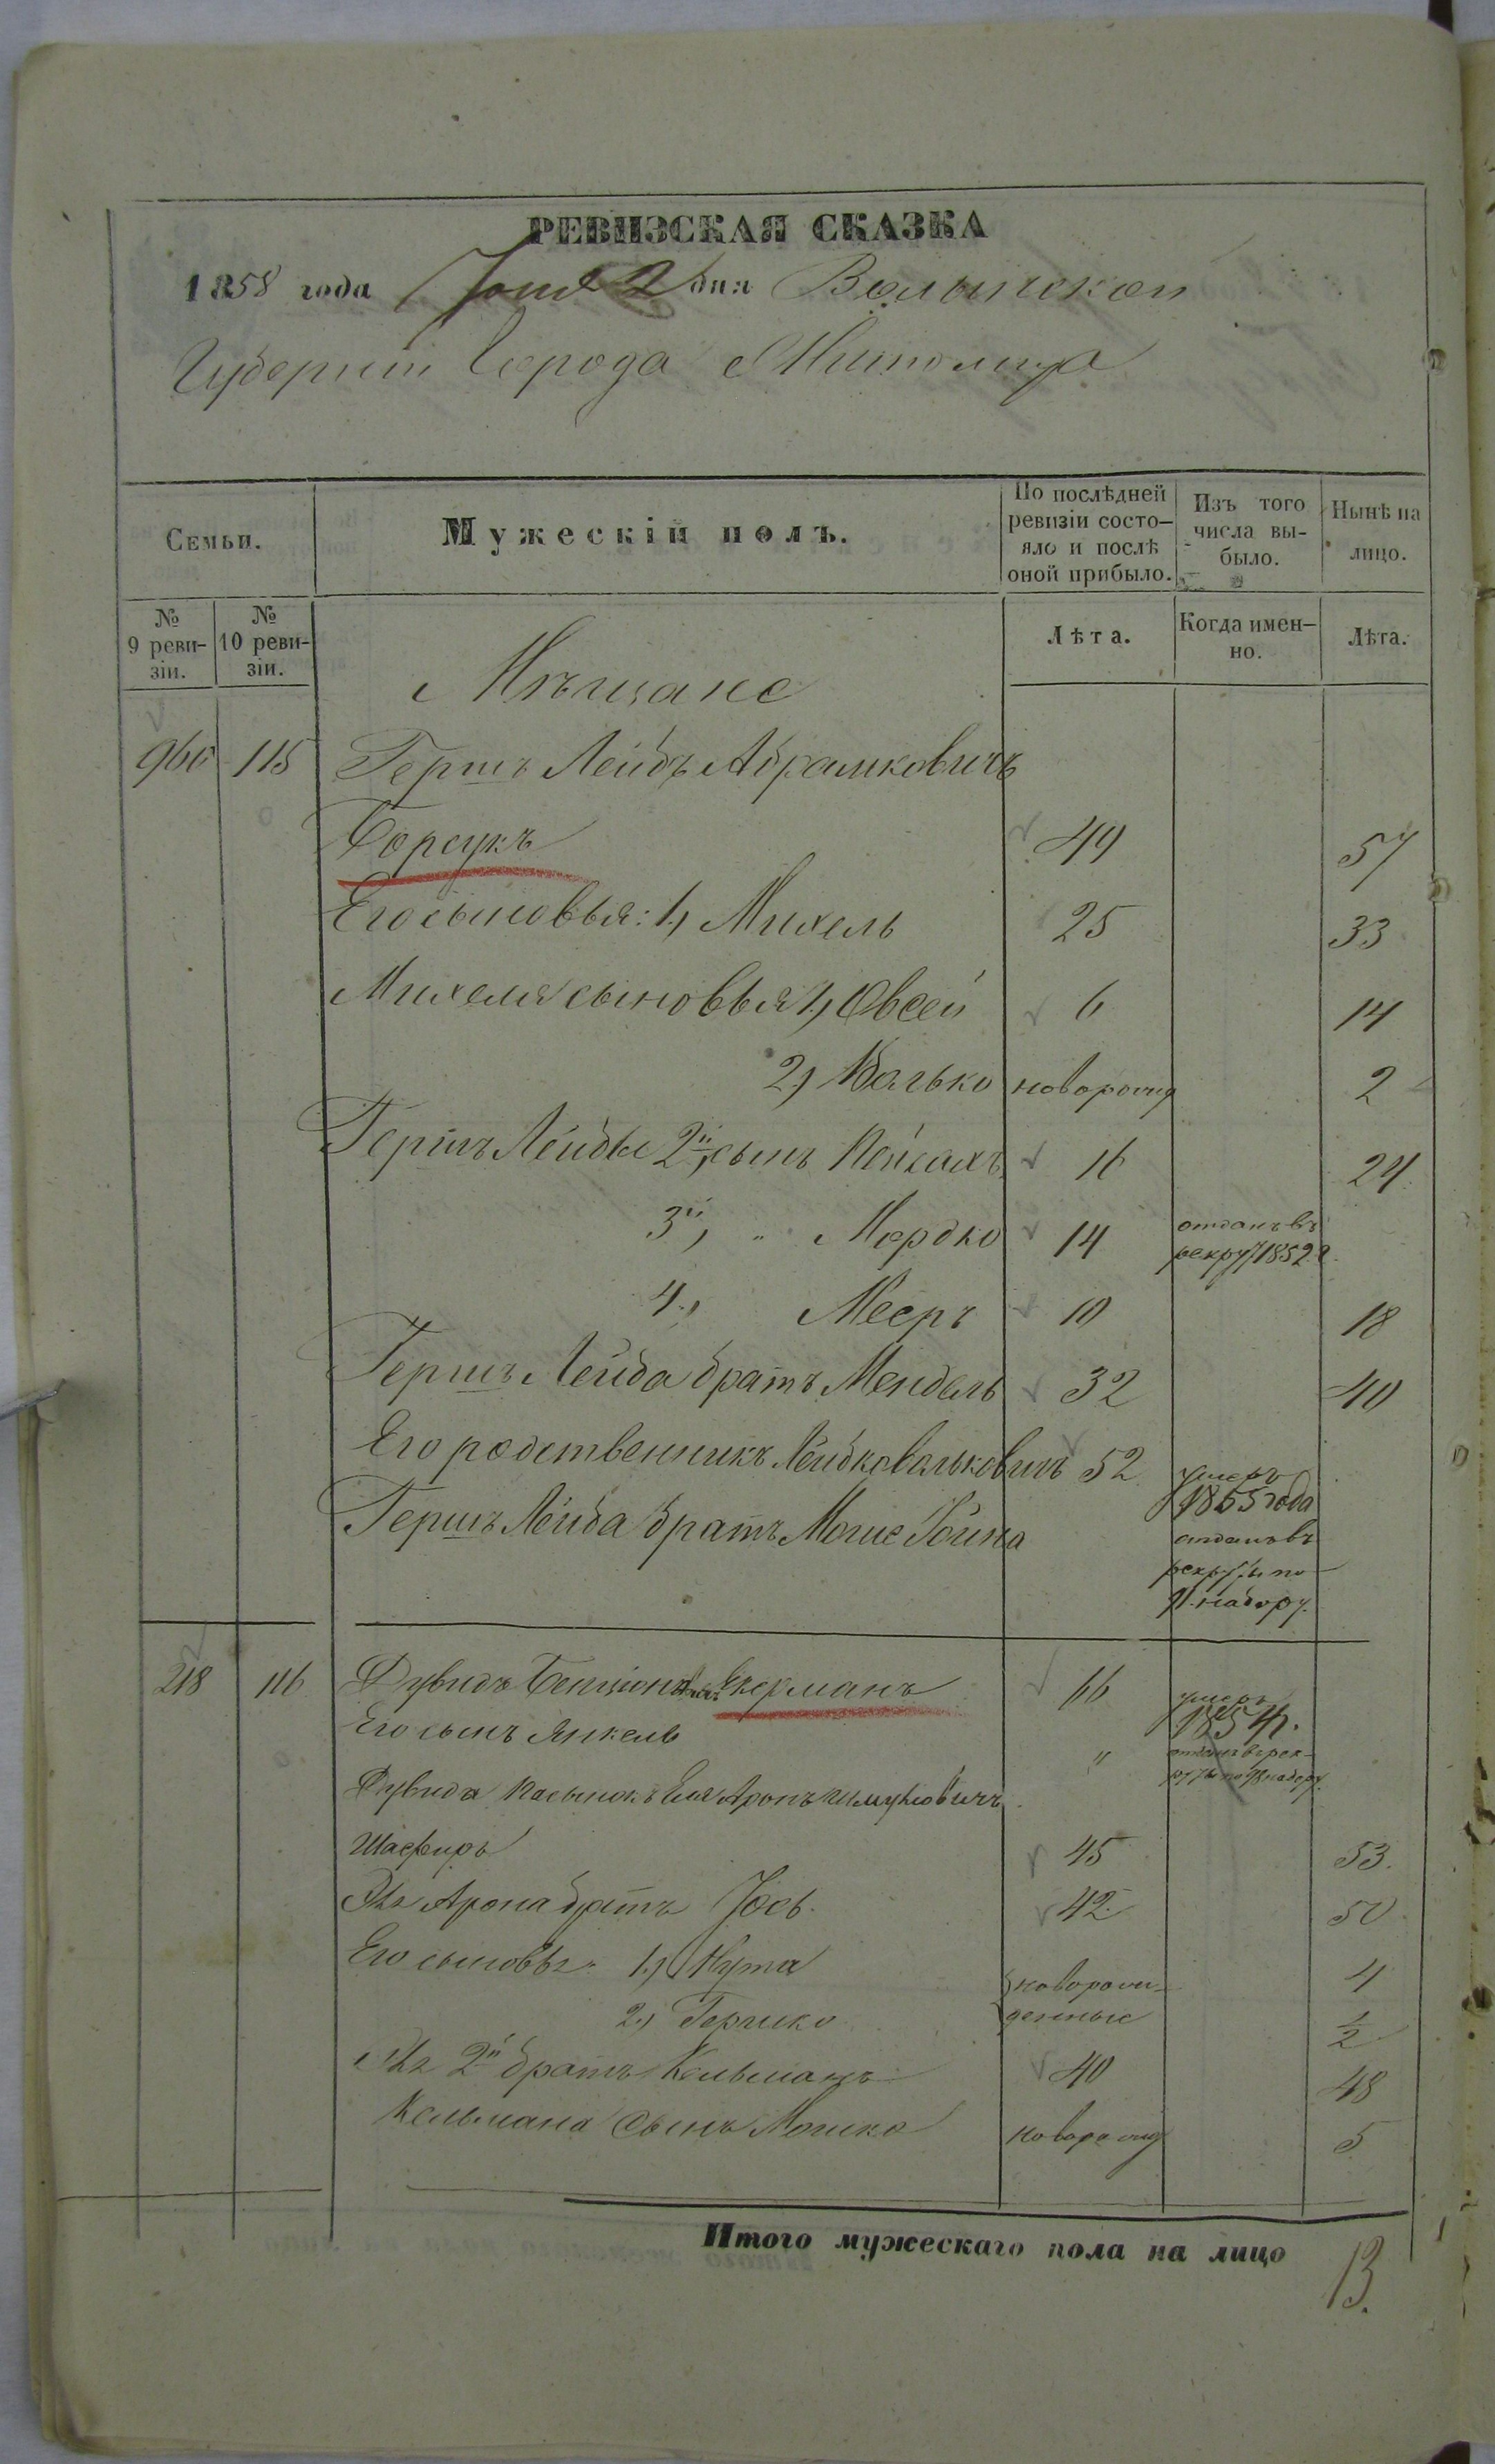 РЕВИЗСКАЯ СКАЗКА
1858 года Іюня 2 дня Волынской
Губерніи Города Житомира
Семьи.
Мужескій полъ.
По послѣдней ревизіи состо-
яло и послѣ оной прибыло.
Изъ того числа вы-
было.
Нынѣ на лицо.
№ 9 реви-
зіи.
№ 10 реви-
зіи.
Лѣта.
Когда имен-
но.
Лѣта.
Мѣщане
960 115 Гершъ Лейбъ Абрамковичъ
Борсукъ 49 57
Его сыновья: 1, Михель 25 33
Михеля сыновья 1, Овсей 6 14
2, Валько новорожд 2
Гершъ Лейбы 2й, сынъ Пейсахъ 16 24
3й, " Мордко 14 отданъ въ
рекруты 1852 г.
4., Мееръ 10 18
Гершъ Лейба братъ Мендель 32 40
Его родственникъ Лейбко Вальковичъ 52 умеръ
1855 года
Гершъ Лейба братъ Моше Іойна отданъ въ
рекруты по
набору.
218 116 Дувидъ Бенціоновичъ Акерманъ 66 умеръ
1854.
Его сынъ Янкель " отданъ въ рек-
руты по набору.
Дувида пасынокъ Еля Аронъ
Шафиръ 45 53.
Арона братъ Іось. 42 50
Его сыновья: 1, Нута новорож-
денные 4
2, Гершко 1/2
2й братъ Кельманъ 40 48
Кельмана сынъ Мошко новорожд 5
Итого мужескаго пола на лицо 13.